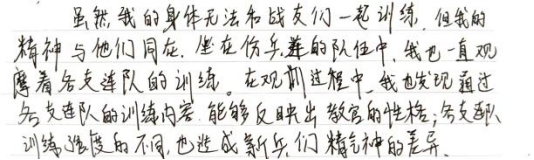 虽然我的身体无法和战友们一起训练,但我的
精神与他们同在。坐在伤兵连的队伍中,我也一直观
摩着各支连队的训练。在观训过程中,我也发现通过
各支连队的训练内容,能够反映出教官的性格;各支部队
训练强度的不同,也造成新兵们精气神的差异。